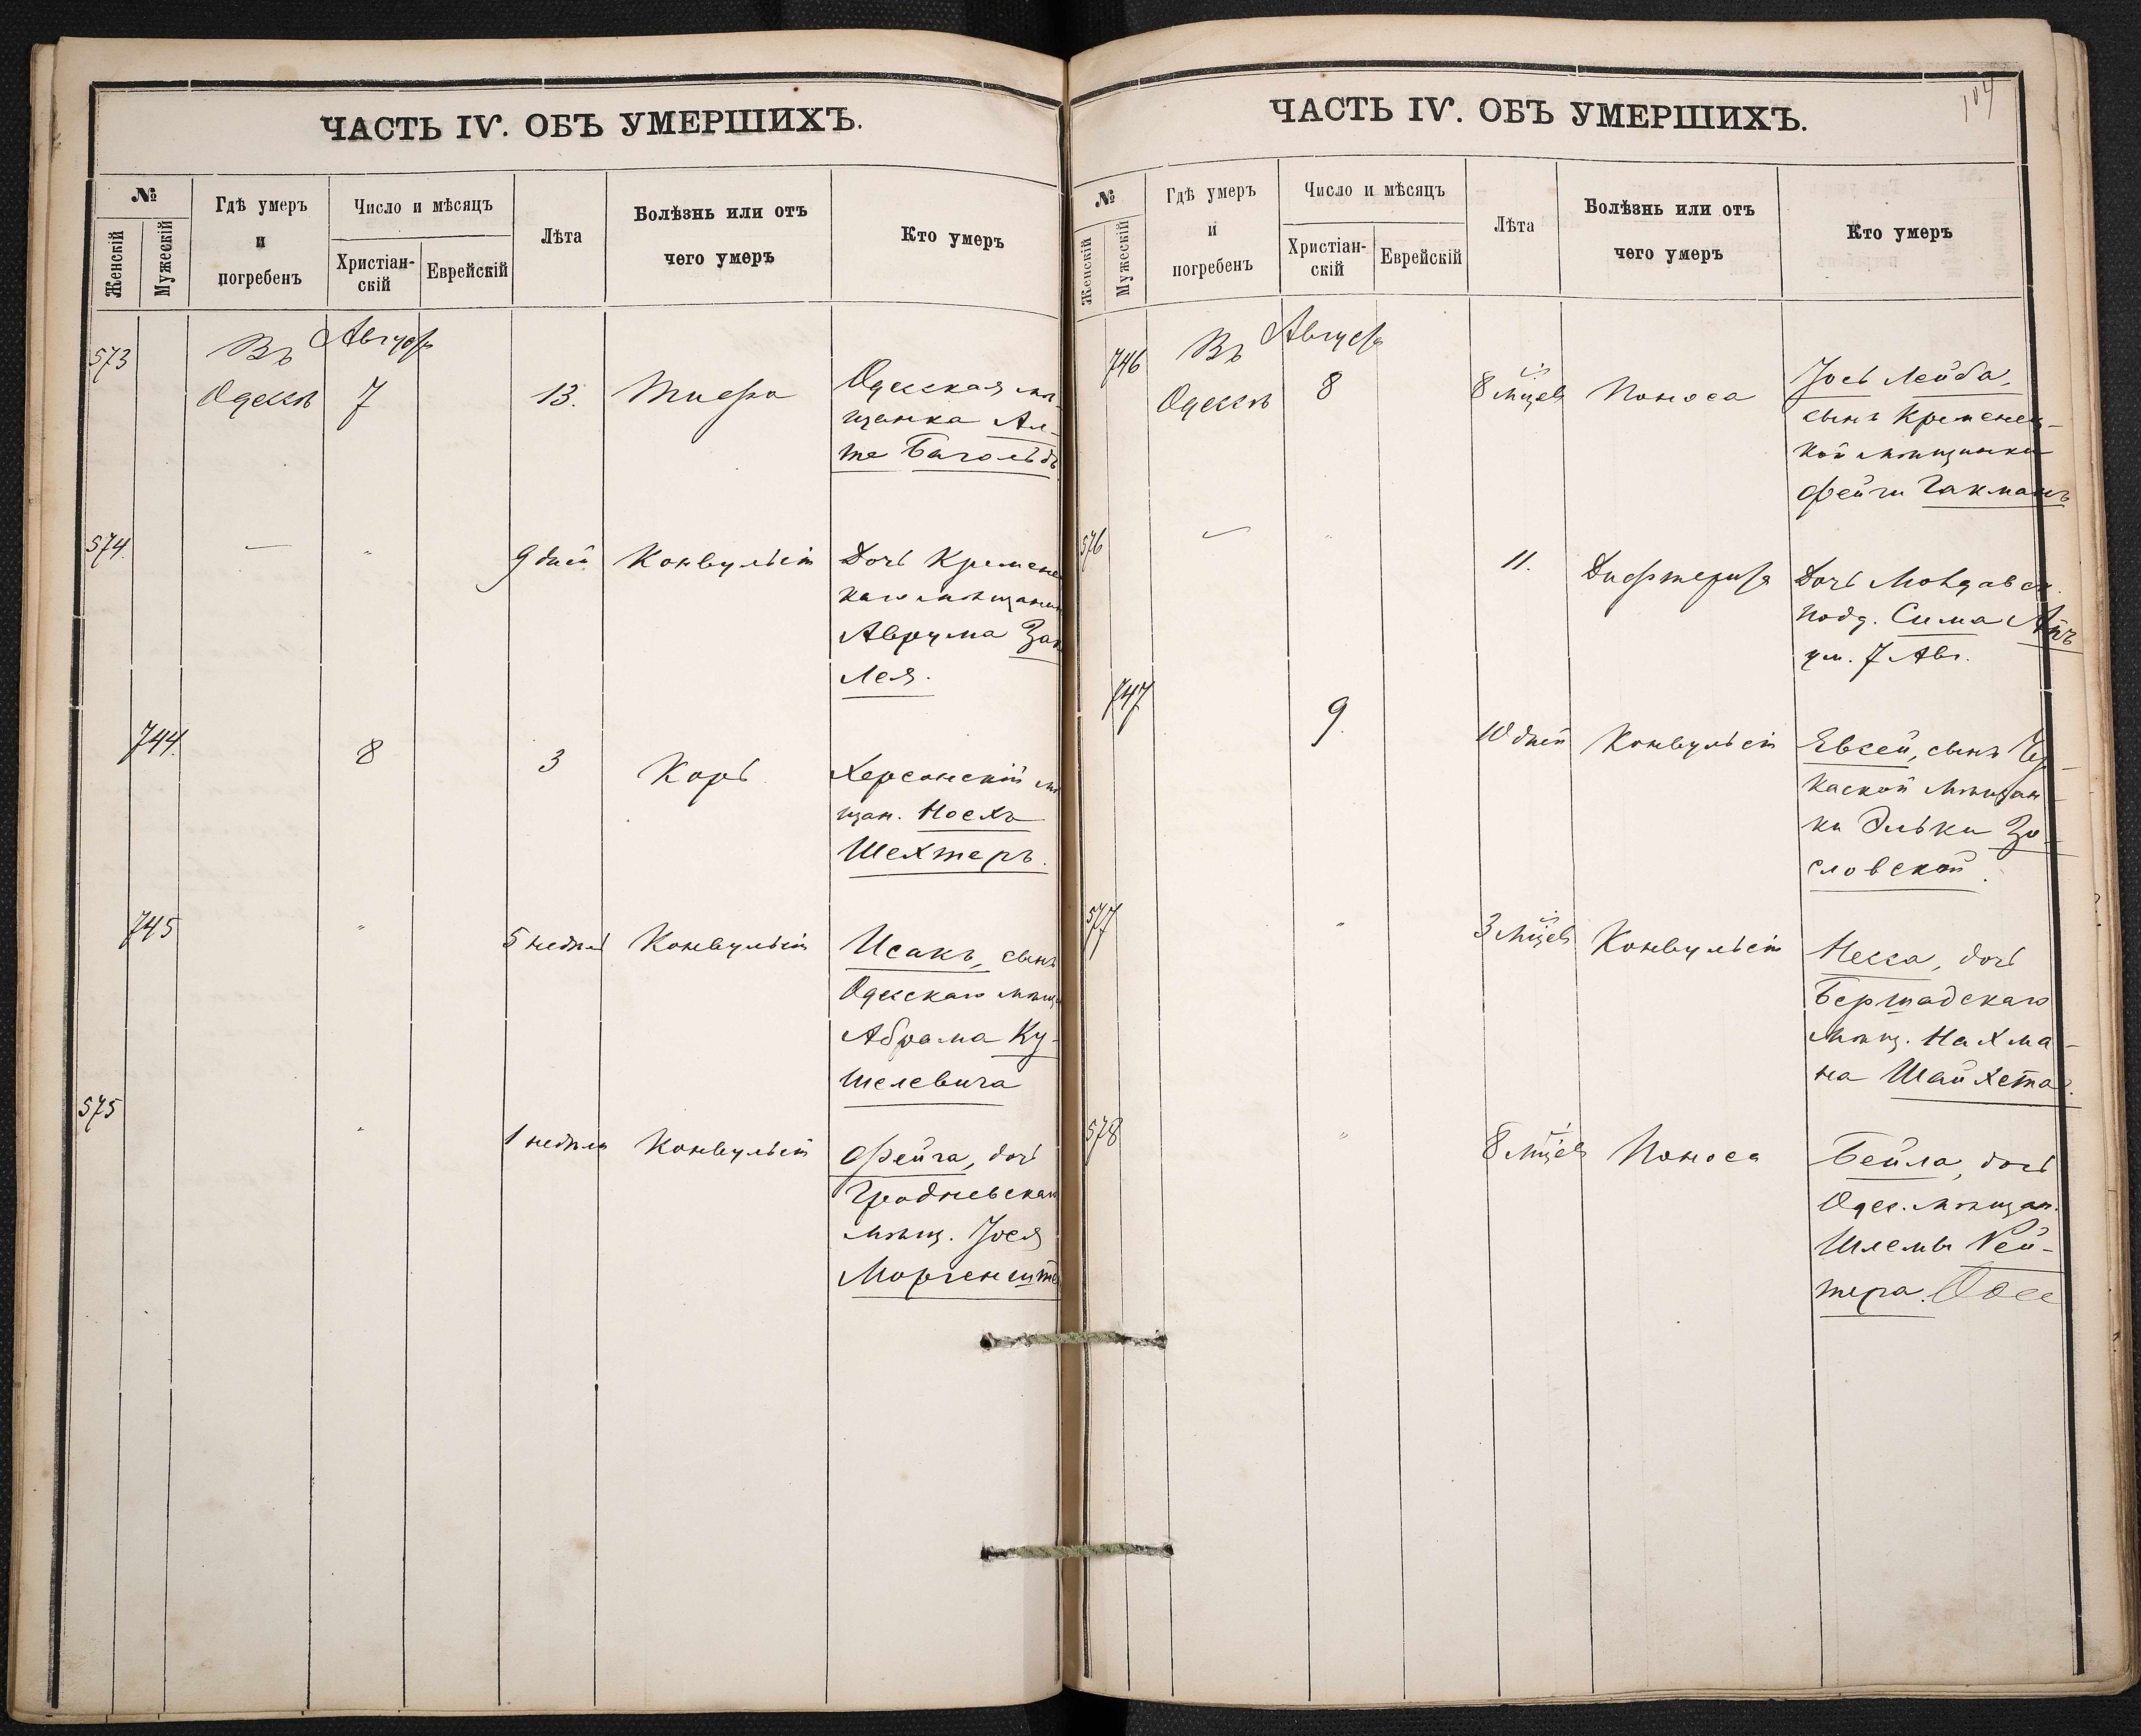 ЧАСТЬ IV. ОБЪ УМЕРШИХЪ.
№
Женскій
Мужескій
Гдѣ умеръ
и
погребенъ
Число и мѣсяцъ
Христіан-
скій
Еврейскій
Лѣта
Болѣзнь или отъ
чего умеръ
Кто умеръ
573
Въ
Августа
Одессѣ
7
13.
Тифа
Одесская мѣ-
щанка Ал-
те Багольдъ
574.
—
"
9 дней
Конвульсіи
Дочь Кременец
каго мѣщанин
Аврума Зак
Лея.
744.
8
3
Корь
Херсонскій мѣ
щан. Носехъ
Шехтеръ.
745
"
5 недѣль
Конвульсіи
Исакъ, сынъ
Одесскаго мѣщ
Абрама Ку-
шелевича
575
"
1 недѣля
Конвульсіи
Фейга, дочь
Гродневскаго
мѣщ. Іося
Моргенште
ЧАСТЬ IV. ОБЪ УМЕРШИХЪ.
104
№
Женскій
Мужескій
Гдѣ умеръ
и
погребенъ
Число и мѣсяцъ
Христіан-
скій
Еврейскій
Лѣта
Болѣзнь или отъ
чего умеръ
Кто умеръ
746
Въ
Августа
Одессѣ
8
8 мцевъ
Поноса
Іось Лейба,
сынъ Кременец-
кой мѣщанки
Фейги Гакманъ
576
—
"
11.
Дифтерита
Дочь Молдавск.
подд. Сима
ум. 7 Авг.
747
9
10 дней
Конвульсіи
Евсей, сынъ Чер-
каской мѣщан-
ки Эльки Зо-
словской.
577
"
3 мцевъ
Конвульсіи
Несса, дочь
Бершадскаго
мѣщ. Нахма-
на Шайхета.
578
"
8 мцевъ
Поноса
Бейла, дочь
Одес. мѣщан.
Шлемы Рей-
тера.